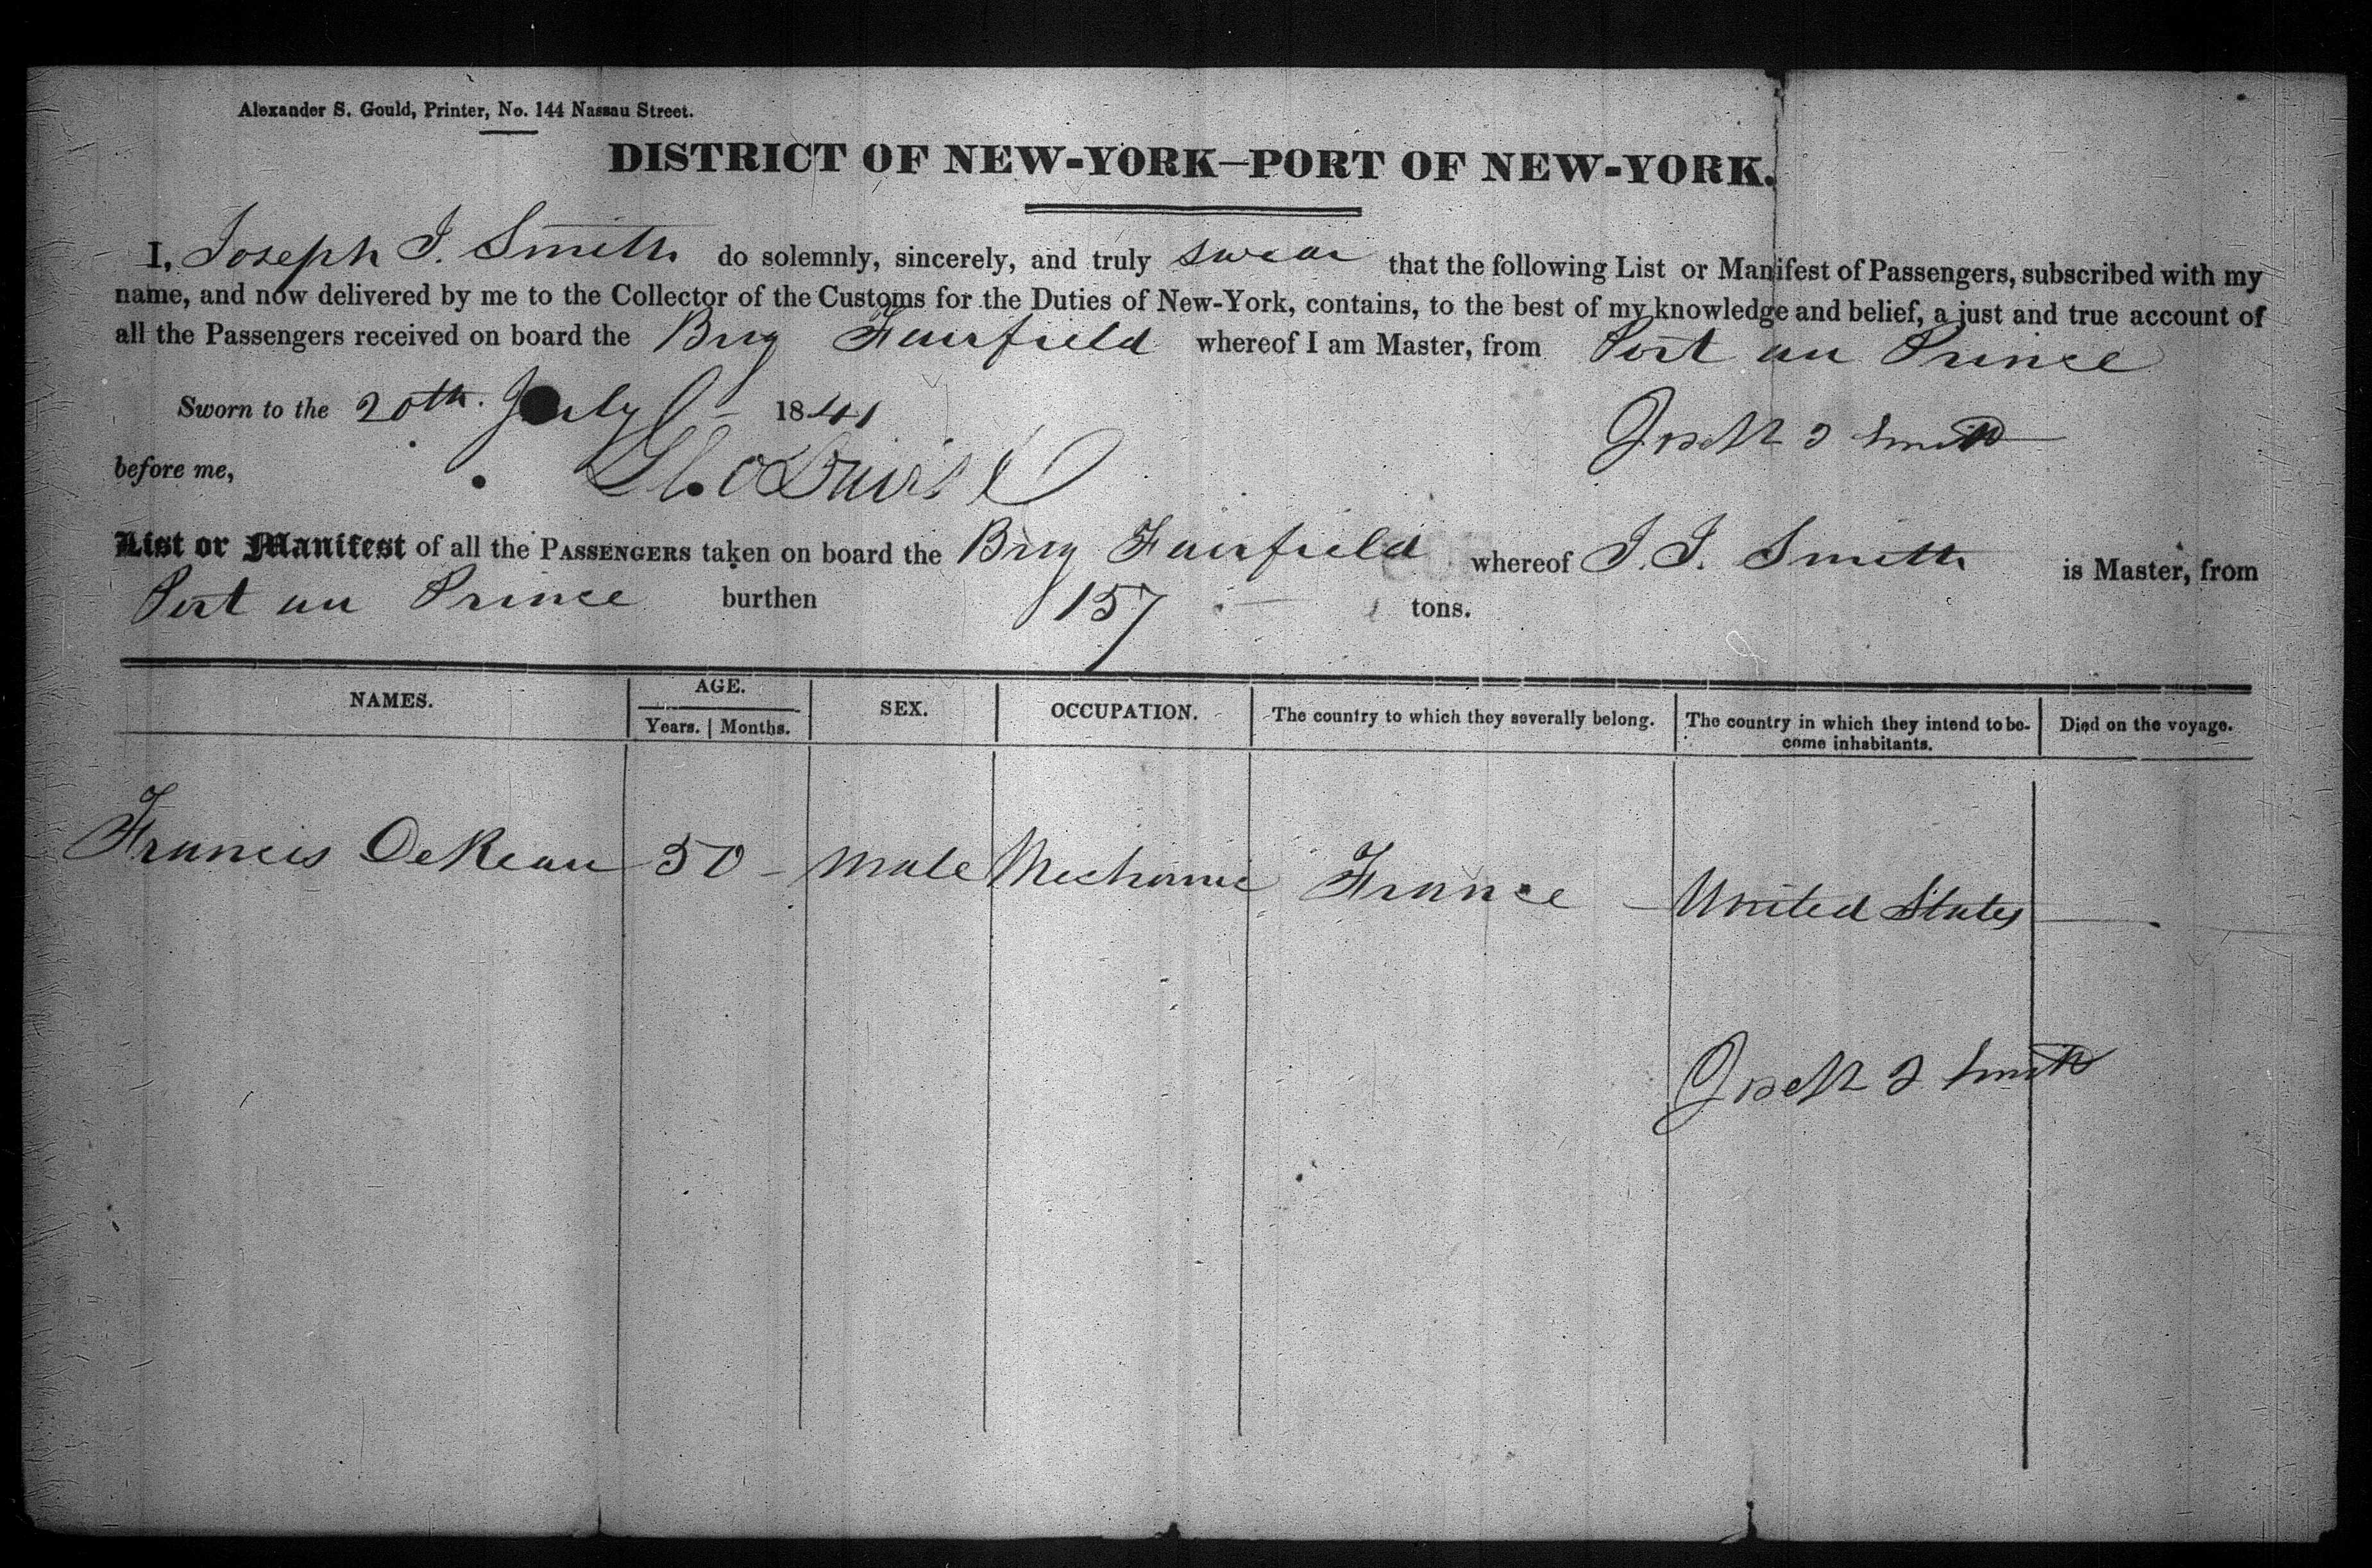 Alexander S. Gould, Printer, No. 144 Nassau Street.
DISTRICT OF NEW-YORK—PORT OF NEW-YORK.
I, Joseph J. Smith do solemnly, sincerely, and truly swear that the following List or Manifest of Passengers, subscribed with my
name, and now delivered by me to the Collector of the Customs for the Duties of New-York, contains, to the best of my knowledge and belief, a just and true account of
all the Passengers received on board the Brig Fairfield whereof I am Master, from Port au Prince
Sworn to the 20th. July 1841
Joseph J Smith
before me,
List or Manifest of all the PASSENGERS taken on board the Brig Fairfield whereof J. J. Smith is Master, from
Port au Prince burthen 157 tons.
NAMES. AGE. SEX. OCCUPATION. The country to which they severally belong. The country in which they intend to be- Died on the voyage.
Years. | Months. come inhabitants.
Francis DeReau 50 - Male Mechanic France - United States
Joseph J Smith